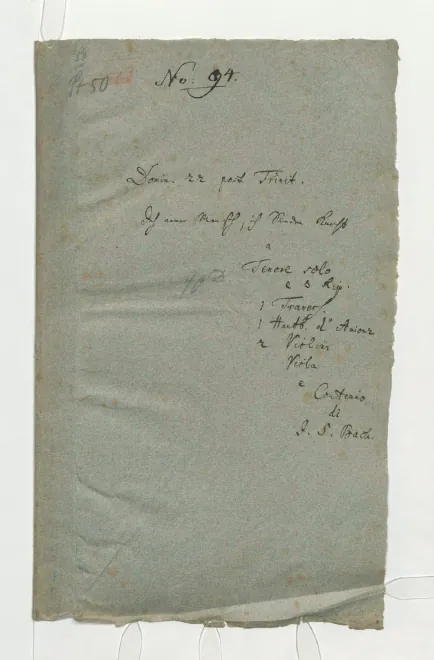 Pt 50
No: 94.
Domin. 22 post Trinit.
Ich armer Mensch, ich Sünden Knecht
a
Tenore solo
e 3 Rip.
1 Travers.
1 Hautb. d'Amour
2 Violini
Viola
e
Continuo
di
J. S. Bach.